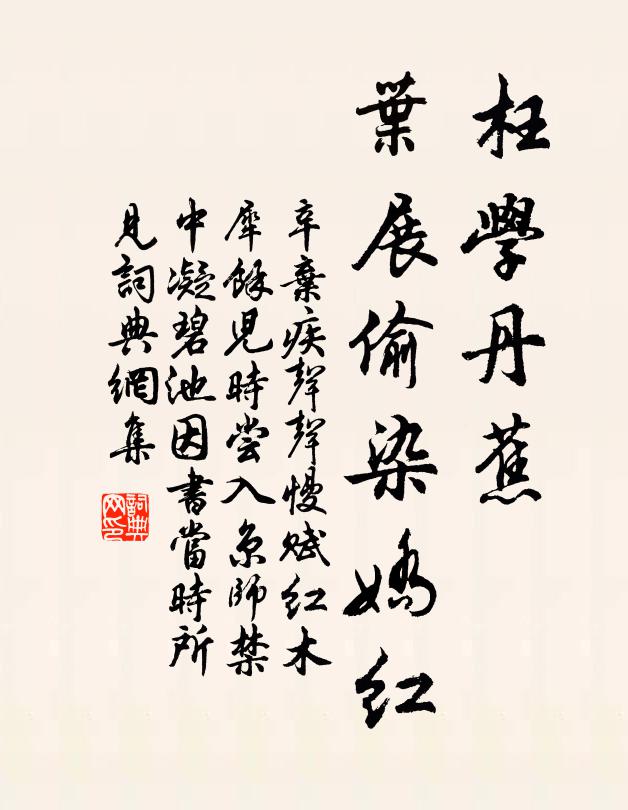 枉學丹蕉
葉展偷染嬌紅
辛棄疾聲聲慢賦紅木
犀餘兒時嘗入京師禁
中凝碧池因書當時所
見詞典網集
詞典网印